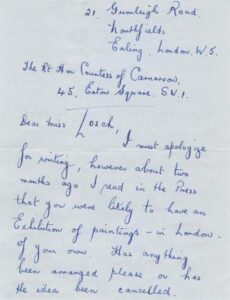 21. Gumleigh Road.
Northfields
Ealing. London. W.5.
The Rt Hon Countess of Carnarvon.
45. Eaton Square. S.W.1.
Dear Miss Losch,
I must apologize
for writing, however about two
months ago I read in the Press
that you were likely to have an
Exibition of paintings - in London -
of your own. Has anything
been arranged please or has
the idea been cancelled.